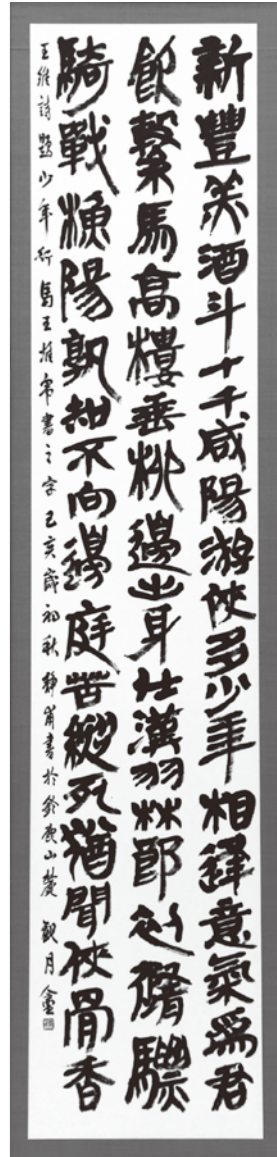 新豐美酒斗十千咸陽游俠多少年相逢意氣為君
飲繫馬高樓垂柳邊出身仕漢羽林郎初隨驃
騎戰漁陽孰知不向邊庭苦縱死猶聞俠骨香
王維詩題少年行馬王堆帛書之字己亥歲初秋靜甫書於鈴鹿山麓觀月盦